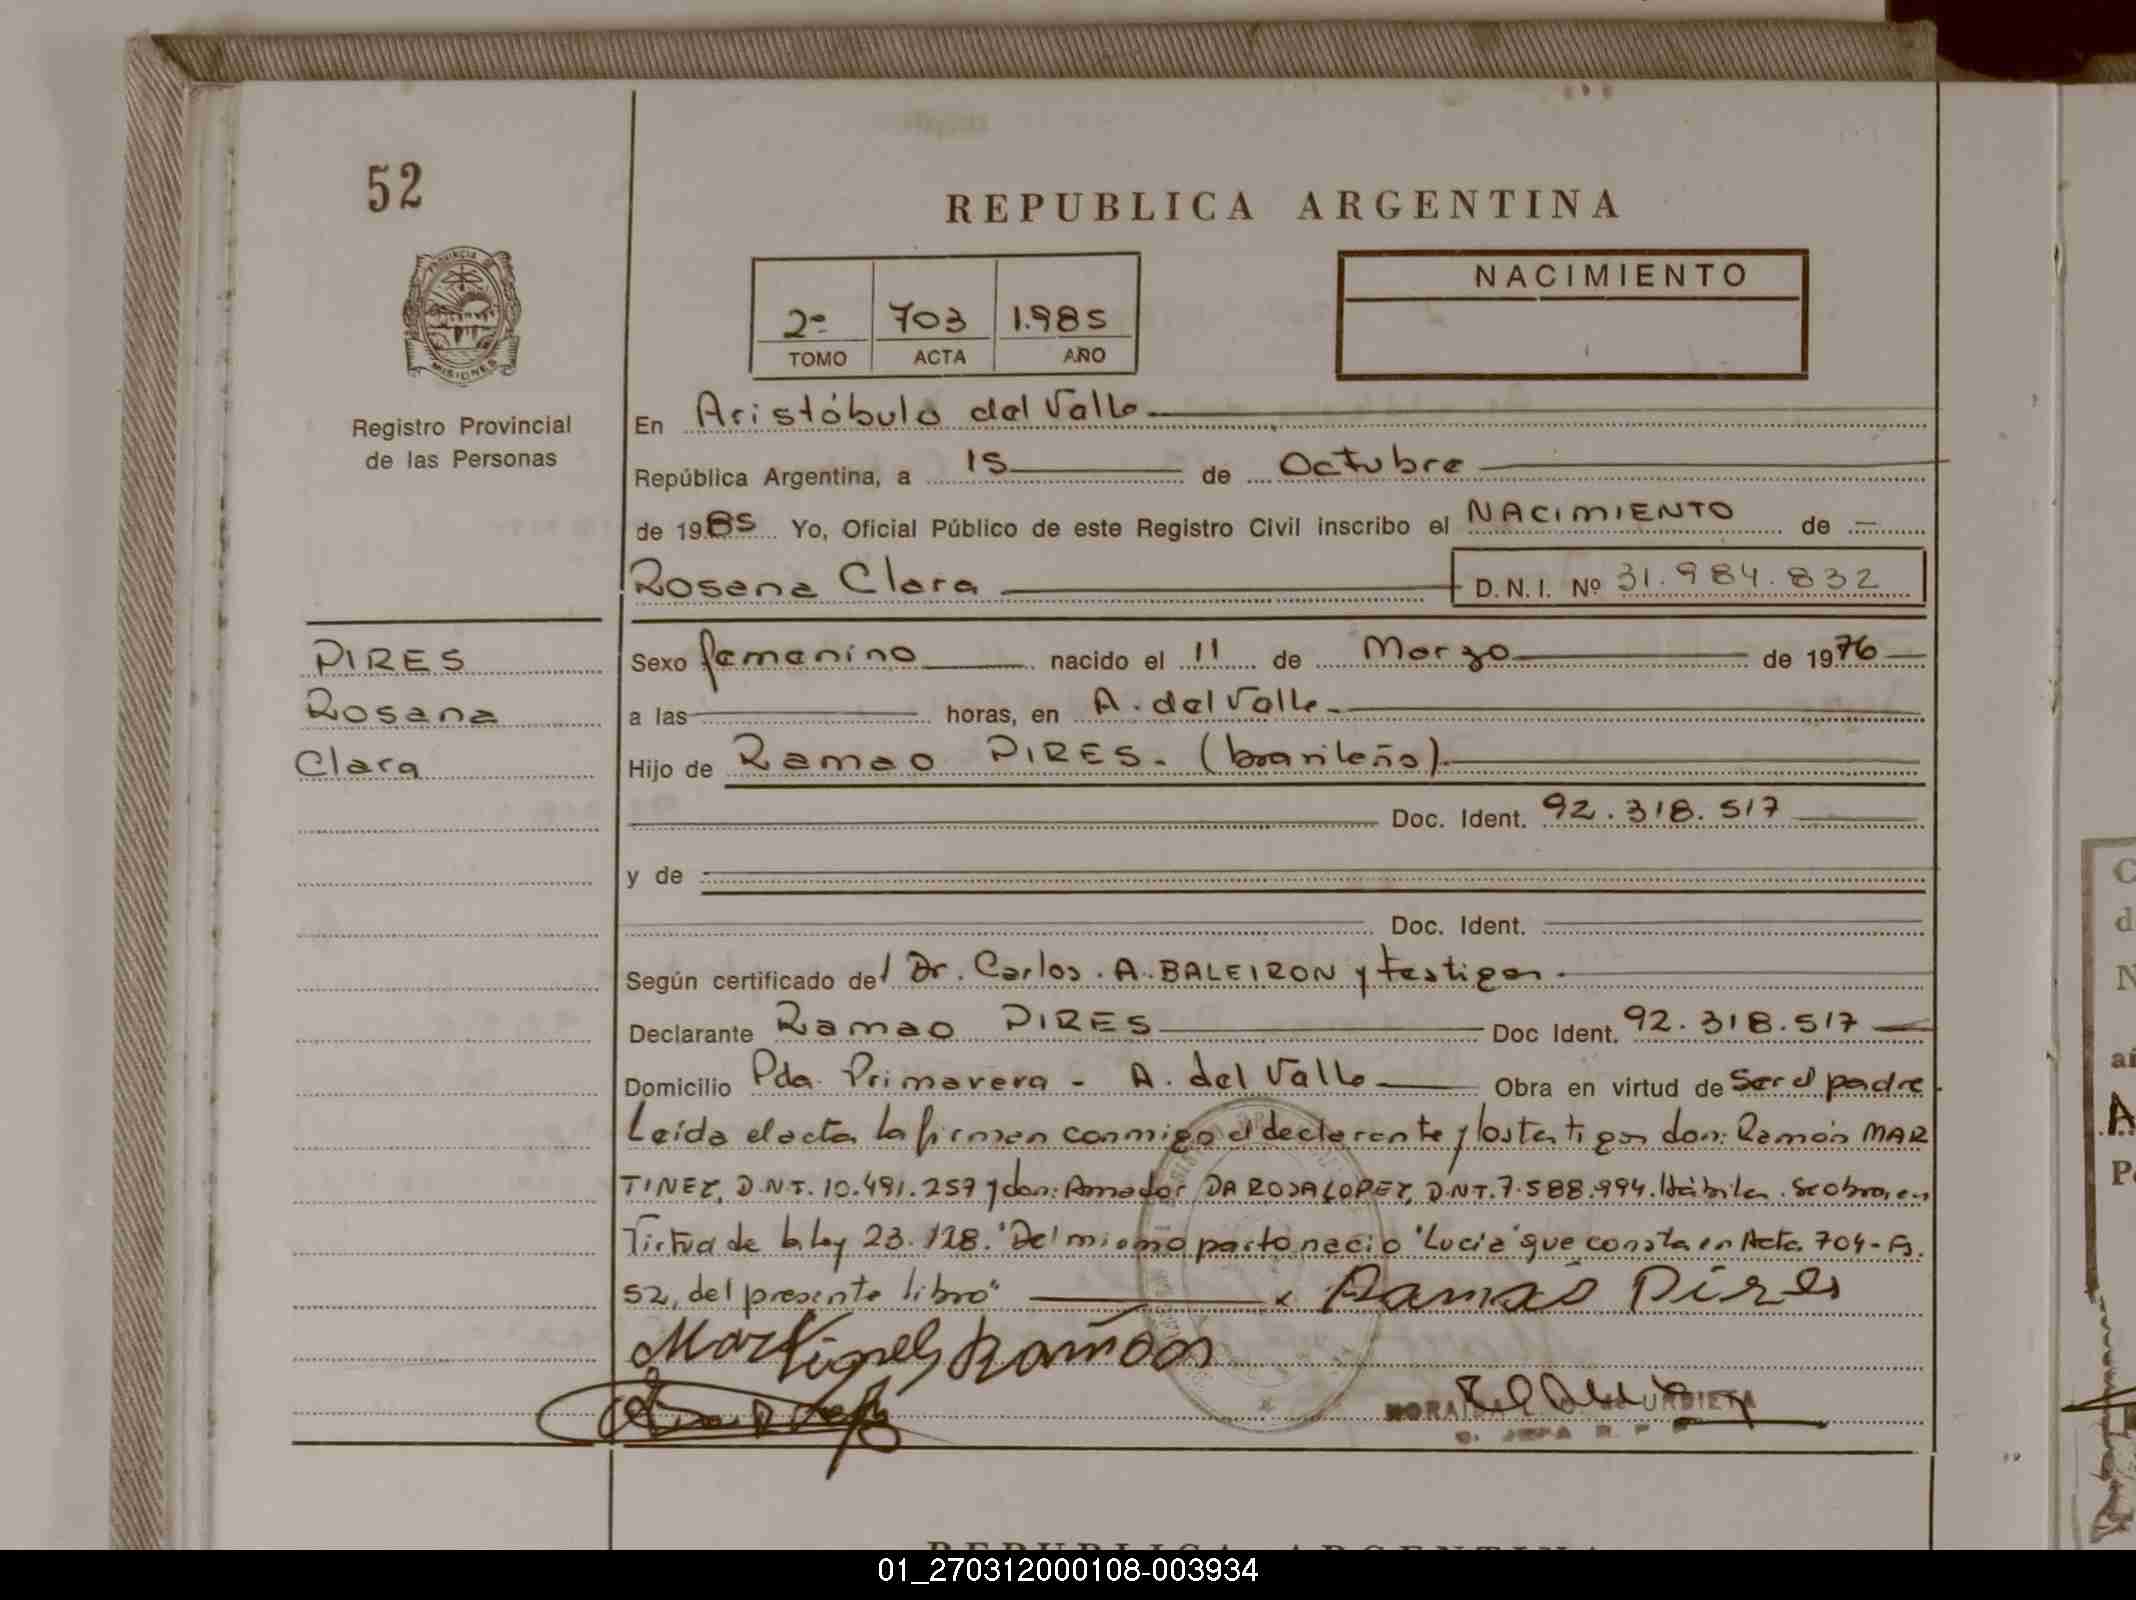 52
REPUBLICA ARGENTINA
PROVINCIA DE
MISIONES
Registro Provincial
de las Personas
2º 703 1.985
TOMO ACTA AÑO
NACIMIENTO
En Aristóbulo del Valle.
República Argentina, a 15 de Octubre
de 1985 Yo, Oficial Público de este Registro Civil inscribo el NACIMIENTO de
Rosana Clara D.N.I. Nº 31.984.832
PIRES
Rosana
Clara
Sexo femenino nacido el 11 de Marzo de 1976
a las horas, en A. del Valle.
Hijo de Ramao PIRES. (brasileño).
Doc. Ident. 92.318.517
y de
Doc. Ident.
Según certificado del Dr. Carlos. A. BALEIRON y testigos.
Declarante Ramao PIRES Doc Ident. 92.318.517
Domicilio Pda. Primavera - A. del Valle Obra en virtud de Ser el padre
Leída el acta la firman conmigo el declarante y los testigos don: Ramón MAR
TINEZ, D.N.I. 10.491.257 y don: Amador DA ROSA LOPEZ, D.N.I. 7.588.994. Hábiles. Se obra, en
Virtud de la Ley 23.128. "Del mismo parto nació "Lucía" que consta en Acta 704 - Fs.
52, del presente libro" x Ramão Pires
Martines Ramóon
URBIETA
01_270312000108-003934